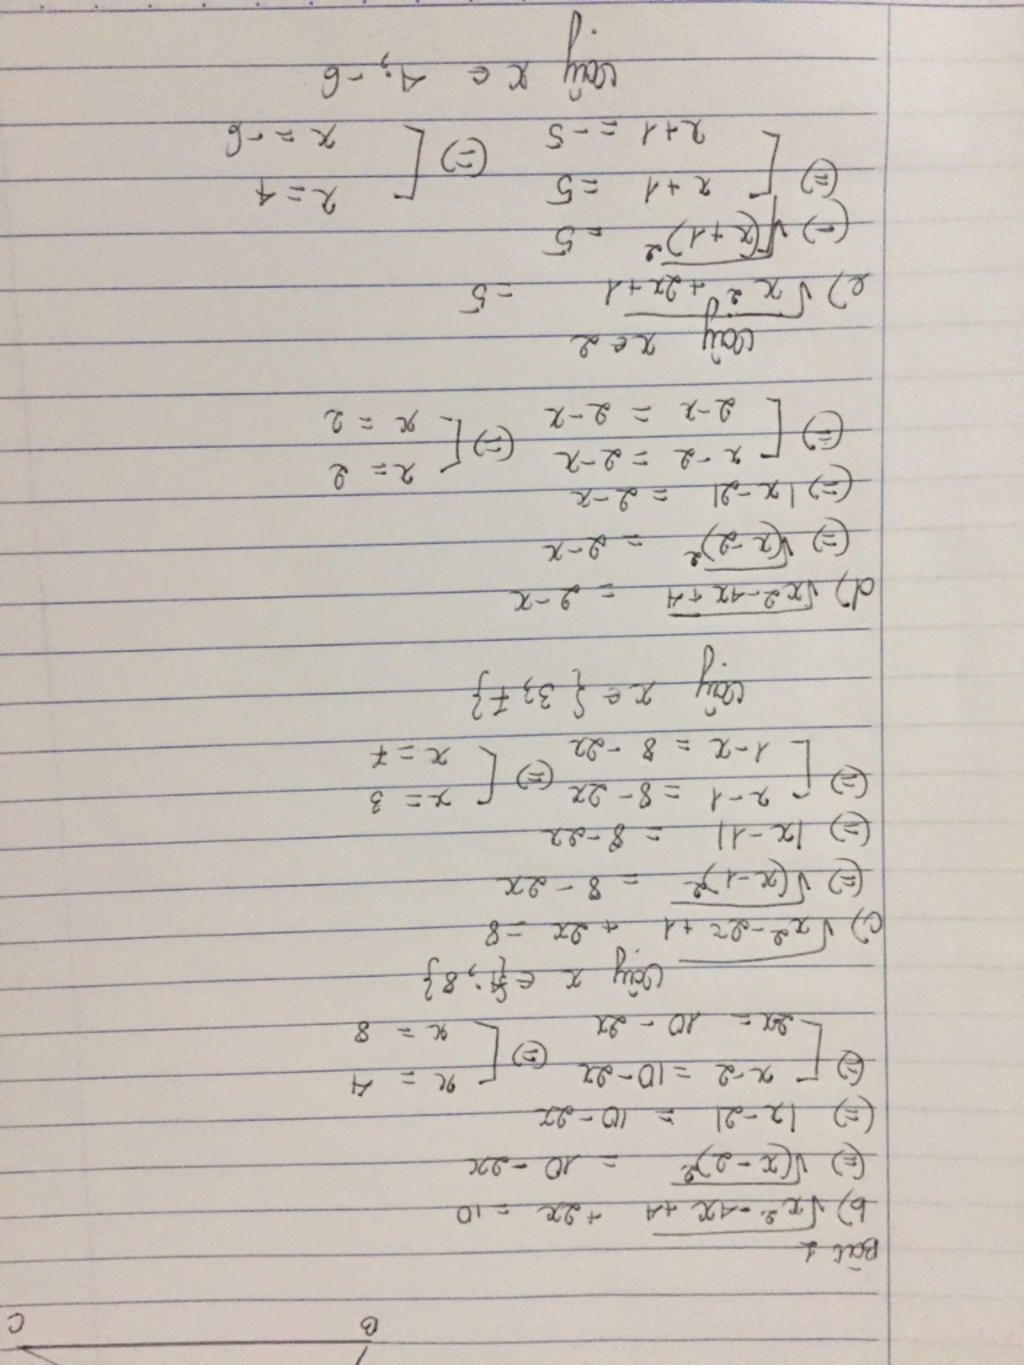 B
C
Bài 1
b) √x²-4x+4 + 2x = 10
(=) √(x-2)² = 10 - 2x
(=) |x-2| = 10-2x
(=) [ x-2 = 10-2x (=) [ x = 4
2x = 10-2x x = 8
Vậy x ∈ {4; 8}
c) √x²-2x+1 + 2x = 8
(=) √(x-1)² = 8 - 2x
(=) |x-1| = 8-2x
(=) [ x-1 = 8-2x (=) [ x = 3
1-x = 8-2x x = 7
Vậy x ∈ { 3; 7}
d) √x²-4x+4 = 2-x
(=) √(x-2)² = 2-x
(=) |x-2| = 2-x
(=) [ x-2 = 2-x (=) [ x = 2
2-x = 2-x x = 2
Vậy x ∈ 2
e) √x²+2x+1 = 5
(=) √(x+1)² = 5
(=) [ x+1 = 5 (=) [ x = 4
x+1 = -5 x = -6
Vậy x ∈ 4; -6